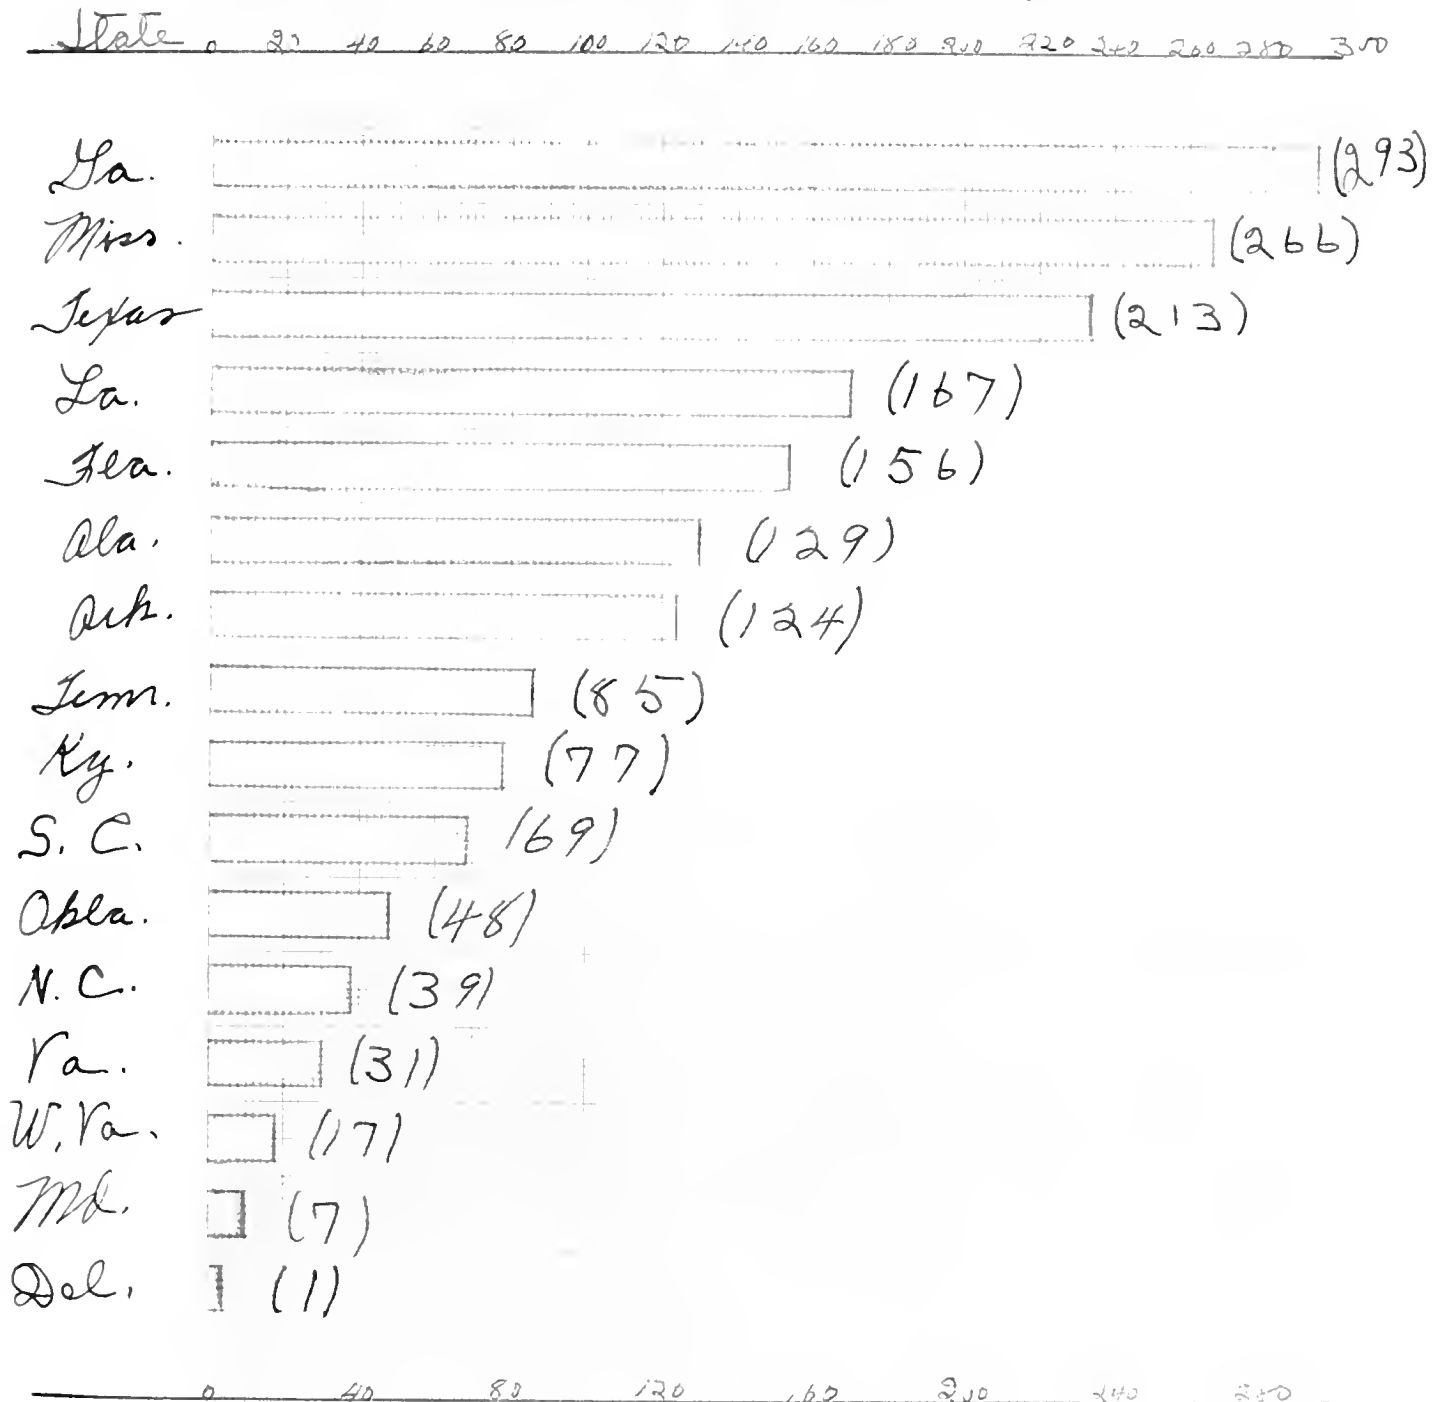 State 0 20 40 60 80 100 120 140 160 180 200 220 240 260 280 300
Ga. (293)
Miss. (266)
Texas (213)
La. (167)
Fla. (156)
Ala. (129)
Ark. (124)
Tenn. (85)
Ky. (77)
S. C. (69)
Okla. (48)
N. C. (39)
Va. (31)
W. Va. (17)
Md. (7)
Del. (1)
0 40 80 120 160 200 240 280